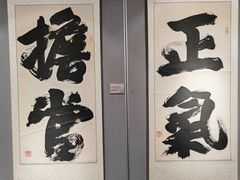 正氣
擔當